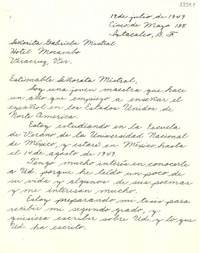 12 de julio de 1949
Cinco de Mayo 155
Ixtacalco, D. F.
Señorita Gabriela Mistral
Hotel Mocambo
Veracruz, Ver.
Estimable Señorita Mistral,
Soy una joven maestra que hace
un año que empiezo a enseñar el
español en los Estados Unidos de
Norte America.
Estoy estudiando en la Escuela
de Verano de la Universidad Nacional
de México, y estaré en México hasta
el 14 de agosto de 1949.
Tengo mucho interés en conocerle
a Ud. porque he leído un poco de
su vida y algunos de sus poemas
y me interesan mucho.
Estoy preparando mi tesis para
recibir mi segundo grado, y
quisiera escribir sobre Ud. y lo que
Ud. ha escrito.